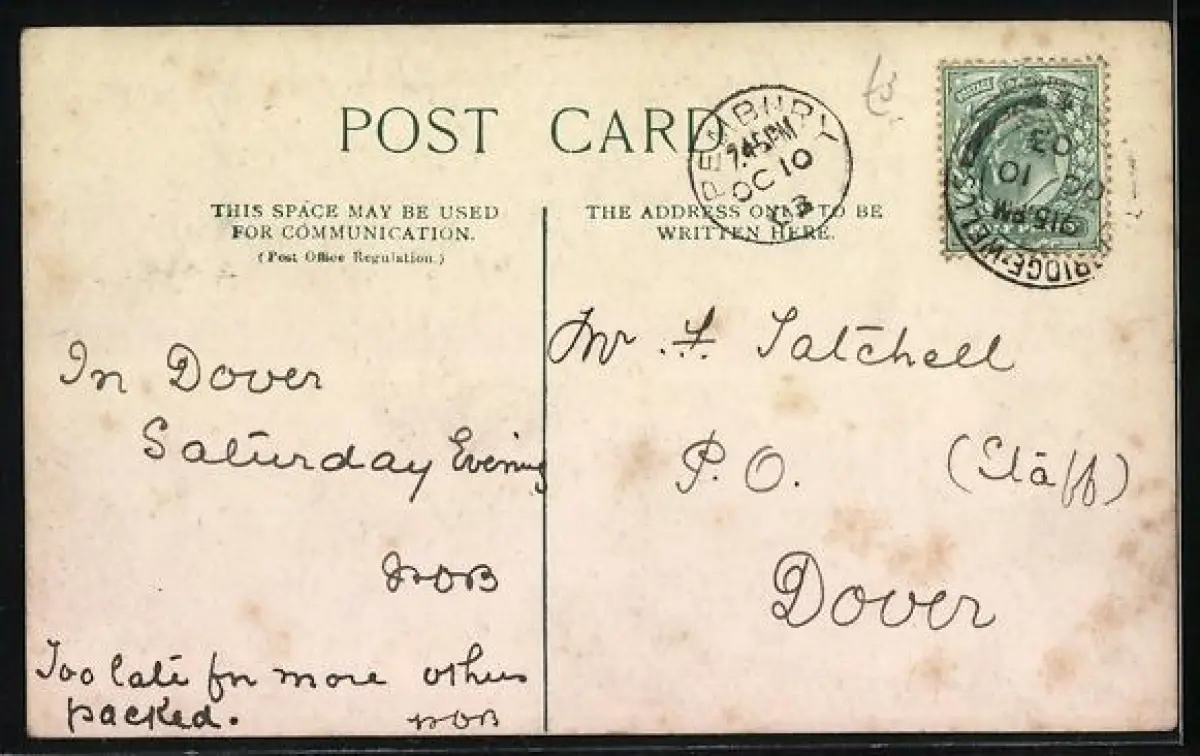 POST CARD
THIS SPACE MAY BE USED
FOR COMMUNICATION.
(Post Office Regulation.)
THE ADDRESS ONLY TO BE
WRITTEN HERE.
PEMBURY
7.45PM
OC 10
03
BRIDGE-WELLS
915.PM
OC 10
03
In Dover
Saturday Evening
Too late for more others
packed.
Mr. F. Tatchell
P.O. (Staff)
Dover